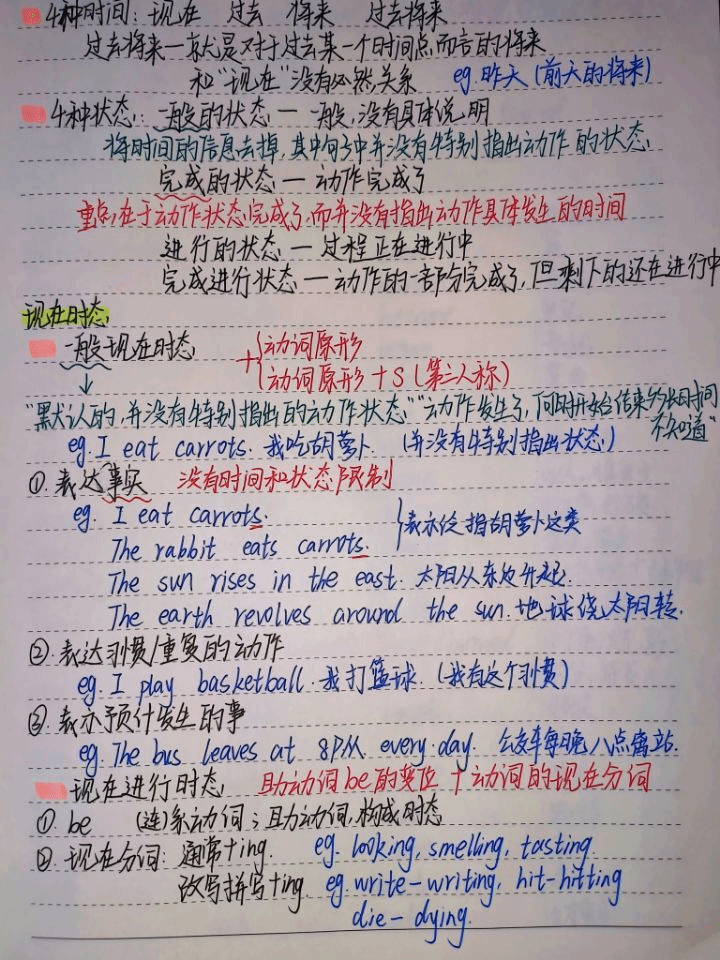 4种时间：现在 过去 将来 过去将来
过去将来一就是对于过去某一个时间点而言的将来
和"现在"没有必然关系 eg.昨天(前天的将来)
4种状态：一般的状态 — 一般,没有具体说明
将时间的信息去掉,其中句子中并没有特别指出动作的状态
完成的状态 — 动作完成了
重点在于动作状态完成了,而并没有指出动作具体发生的时间
进行的状态 — 过程正在进行中
完成进行状态 — 动作的一部分完成了,但剩下的还在进行中
现在时态
一般现在时态 + {动词原形
动词原形+S(第三人称)
"默认的,并没有特别指出的动作状态""动作发生了,何时开始结束的时间
不知道"
eg.I eat carrots.我吃胡萝卜.(并没有特别指出状态)
①.表达事实 没有时间和状态限制
eg. I eat carrots. }表示泛指胡萝卜这类
The rabbit eats carrots.
The sun rises in the east.太阳从东边升起.
The earth revolves around the sun.地球绕太阳转.
②.表达习惯/重复的动作
eg.I play basketball.我打篮球.(我有这个习惯)
③.表示预计发生的事
eg.The bus leaves at 8PM every day. 公交车每晚八点离站.
现在进行时态 助动词be的变位+动词的现在分词
①.be (连)系动词；助动词,构成时态
②.现在分词：通常+ing. eg. looking, smelling, tasting.
改写拼写+ing. eg.write-writing, hit-hitting
die-dying.